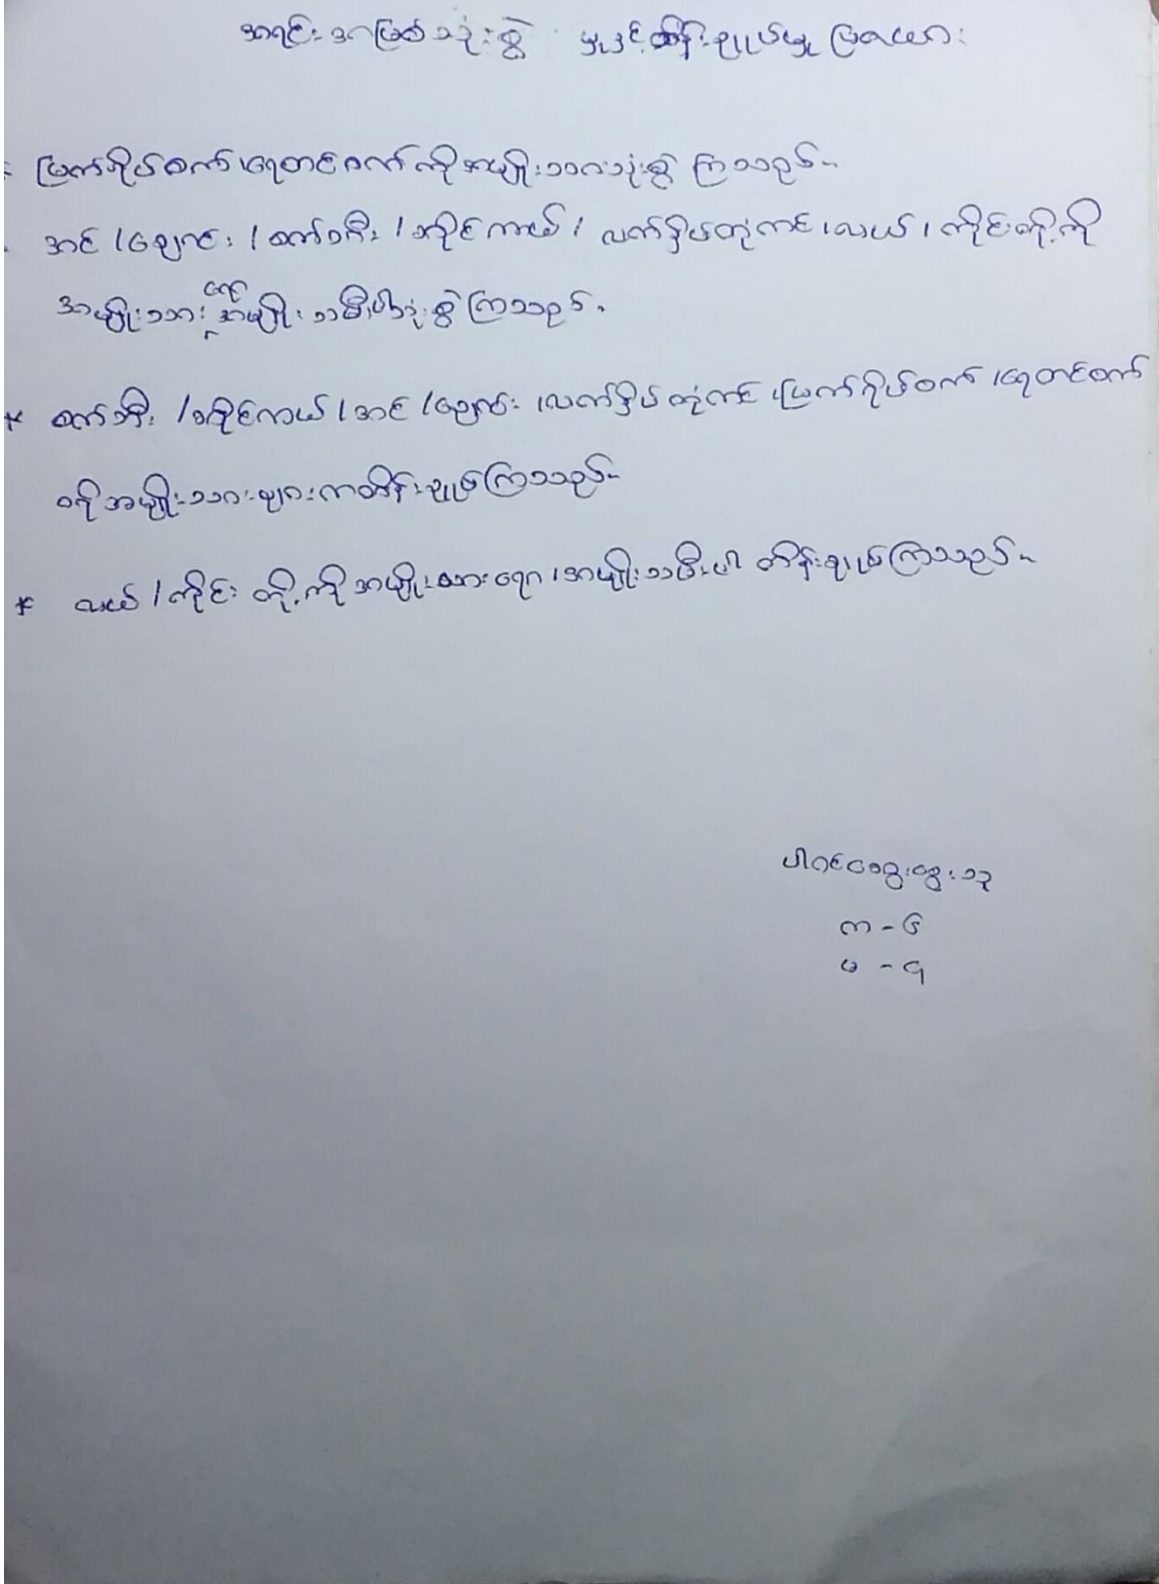 အရင်းအမြစ်သုံးစွဲ မှုနှင့်ထိန်းချုပ်မှု ပြဇယား
မြက်ရိုပ်စက်၊ ရေတင်စက် ကို အမျိုးသားသုံးစွဲ ကြသည်။
အင်/ချောင်း/စက်ဘီး/ဆိုင်ကယ်/ လက်နှိပ်တုံကင်၊ လယ်၊ ကိုင်းတို့ကို
ရော
အမျိုးသား အမျိုးသမီးပါသုံးစွဲကြသည်။
* စက်ဘီး/ဆိုင်ကယ်/အင်/ချောင်း၊ လက်နှိပ်တုံကင်၊ မြက်ရိုပ်စက်၊ ရေတင်စက်
စကိုအမျိုးသားများကထိန်းချုပ်ကြသည်။
* လယ်/ကိုင်း တို့ကိုအမျိုးသားရော၊ အမျိုးသမီးပါ ထိန်းချုပ်ကြသည်။
ပါဝင်ဆွေးနွေးသူ
က - ၆
မ - ၄